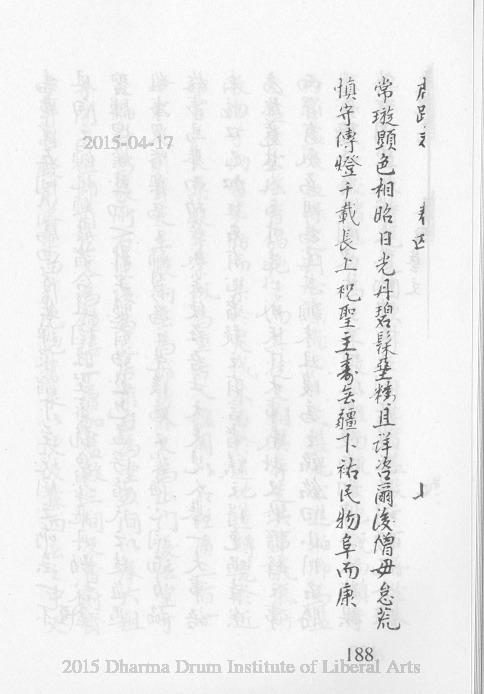 卷四
常璇顯色相昭日光丹碧髹堊精且詳咨爾後僧毋怠荒
慎守傳燈千載長上祝聖主壽無疆下祐民物阜而康
2015-04-17
188
2015 Dharma Drum Institute of Liberal Arts